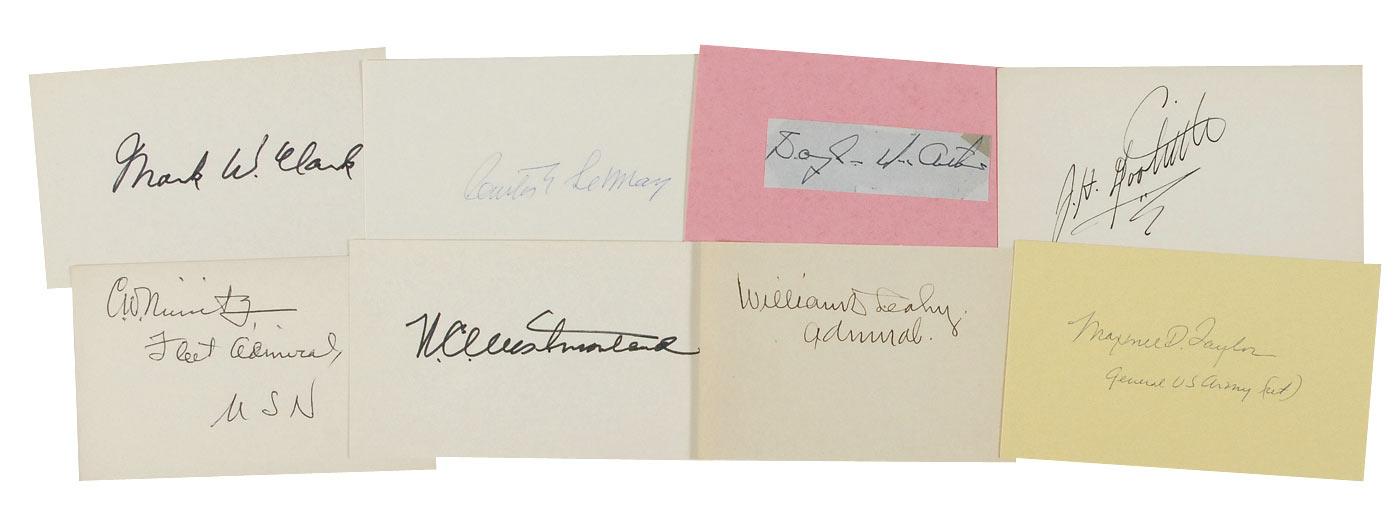 Mark W. Clark
Curtis E LeMay
J. H. Doolittle
C.W. Nimitz
Fleet Admiral,
USN
W.C. Westmoreland
William D Leahy.
Admiral.
Maxwell D. Taylor
General US Army (ret)